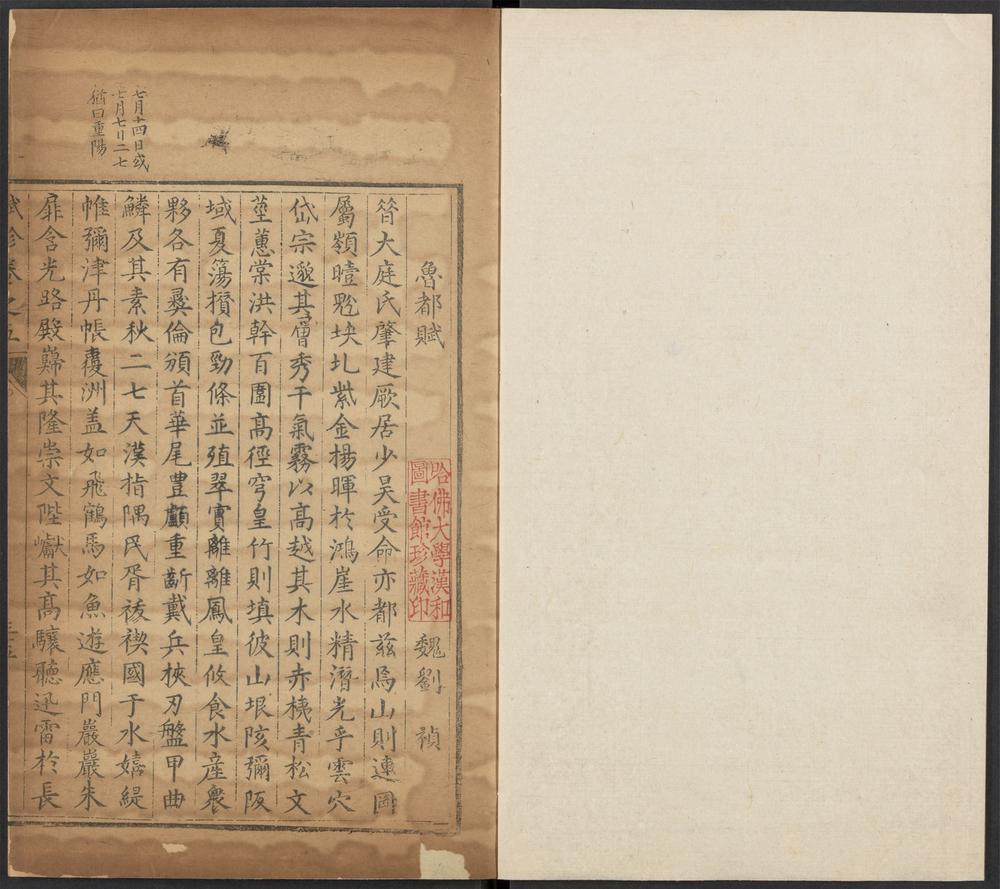 七月十四日或
七月七日二七
猶曰重陽
魯都賦 魏劉 禎
哈佛大學漢和
圖書館珍藏印
昔大庭氏肇建厥居少昊受命亦都茲焉山則連岡
屬嶺暳 坱圠紫金揚暉扵鴻崖水精潛光乎雲穴
岱宗邈其層秀干氣霧以高越其木則赤桋青松文
莖蕙棠洪幹百圍高徑穹皇竹則填彼山垠陔彌阪
域夏簜攢包勁條並殖翠實離離鳳皇攸食水産衆
夥各有彜倫頒首華尾豊顱重齗戴兵挾刃盤甲曲
鱗及其素秋二七天漢指隅民胥祓禊國于水嬉緹
帷彌津丹帳覆洲盖如飛鶴馬如魚遊應門巖巖朱
扉含光路殿巋其隆崇文陛巘其高驤聽迅雷扵長
賦珍卷之五